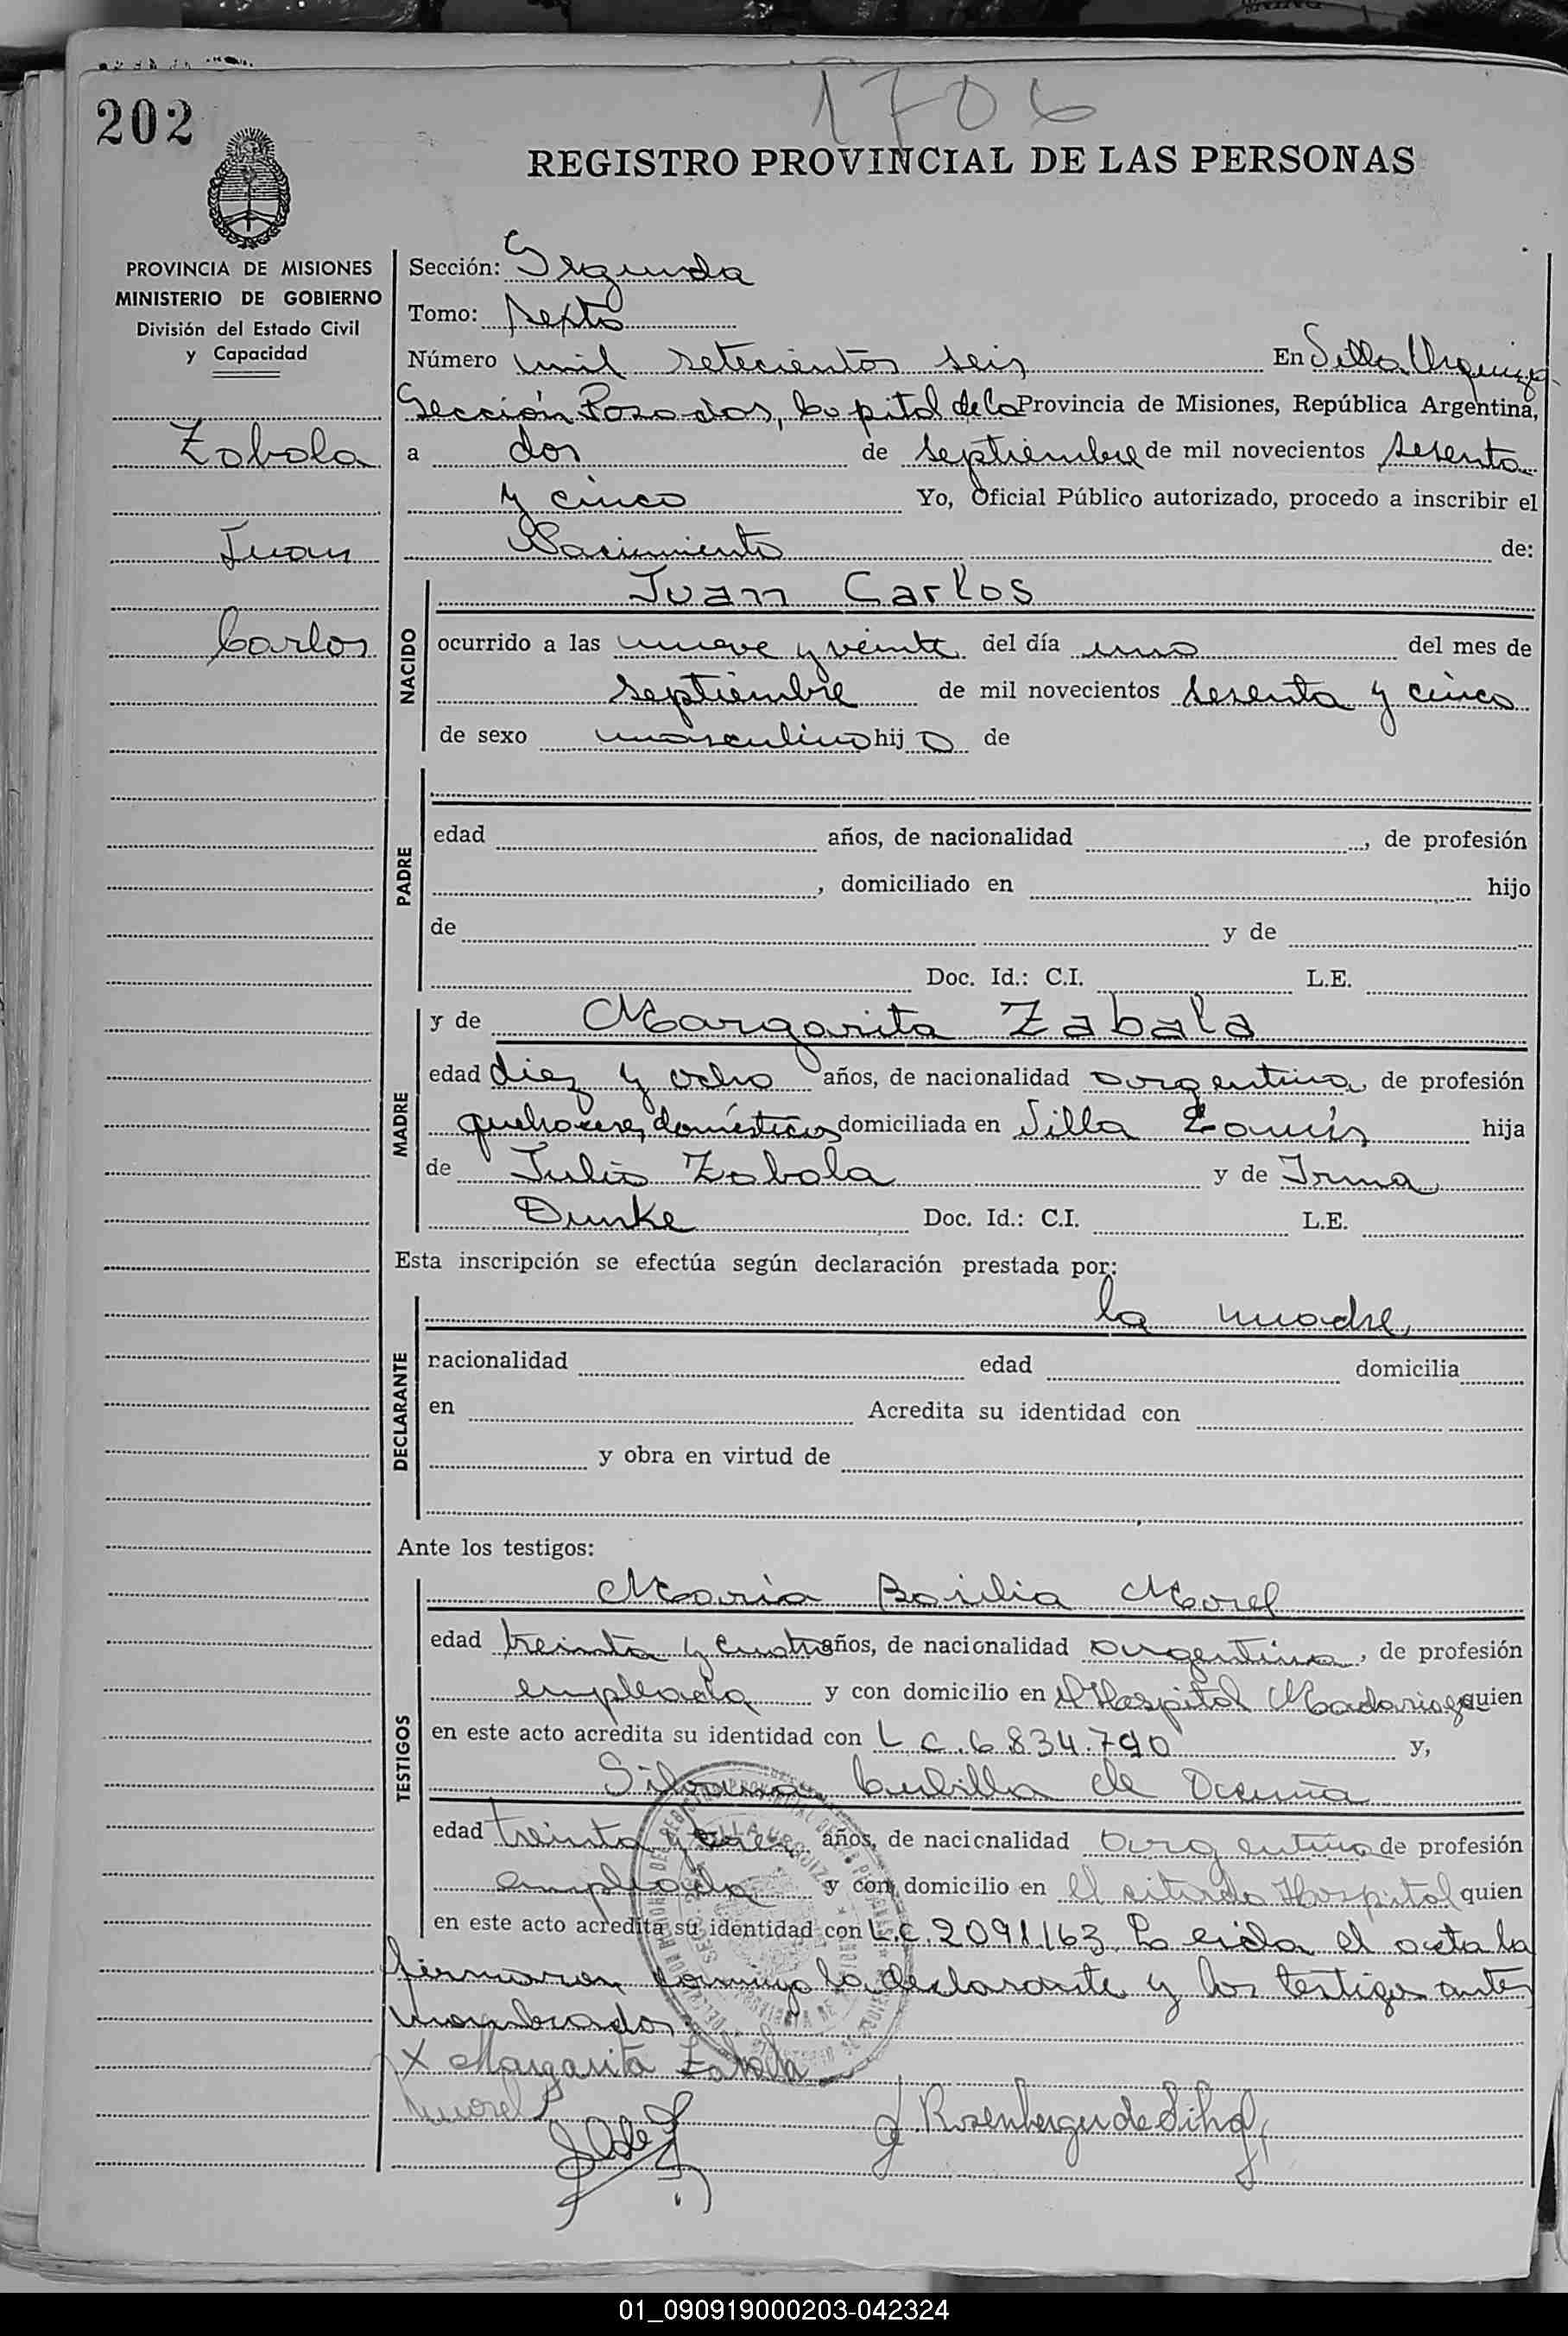 202
1706
REGISTRO PROVINCIAL DE LAS PERSONAS
PROVINCIA DE MISIONES
MINISTERIO DE GOBIERNO
División del Estado Civil
y Capacidad
Zabala
Juan
Carlos
Sección: Segunda
Tomo: Sexto
Número mil setecientos seis En Villa Urquiza
Sección Posadas, Capital de la Provincia de Misiones, República Argentina,
a dos de septiembre de mil novecientos sesenta
y cinco Yo, Oficial Público autorizado, procedo a inscribir el
Nacimiento de:
NACIDO
Juan Carlos
ocurrido a las nueve y veinte del día uno del mes de
septiembre de mil novecientos sesenta y cinco
de sexo masculino hij o de
PADRE
edad años, de nacionalidad , de profesión
, domiciliado en hijo
de y de
Doc. Id.: C.I. L.E.
MADRE
y de Margarita Zabala
edad diez y ocho años, de nacionalidad argentina, de profesión
quehaceres domésticos domiciliada en Villa Lanús hija
de Julio Zabala y de Irma
Dunke Doc. Id.: C.I. L.E.
Esta inscripción se efectúa según declaración prestada por:
DECLARANTE
la madre
nacionalidad edad domicilia
en Acredita su identidad con
y obra en virtud de
Ante los testigos:
TESTIGOS
María Basilia Morel
edad treinta y cuatro años, de nacionalidad argentina, de profesión
empleada y con domicilio en el Hospital Madariaga quien
en este acto acredita su identidad con L C. 6.834.790 y,
Silvana Cubilla de Acuña
edad treinta y tres años, de nacionalidad argentina de profesión
empleada y con domicilio en el citado Hospital quien
en este acto acredita su identidad con L.C. 2091163. Leída el acta la
firmaron conmigo la declarante y los testigos antes
nombrados.
X Margarita Zabala
Morel
J. Rosenberger de Silva
01_090919000203-042324